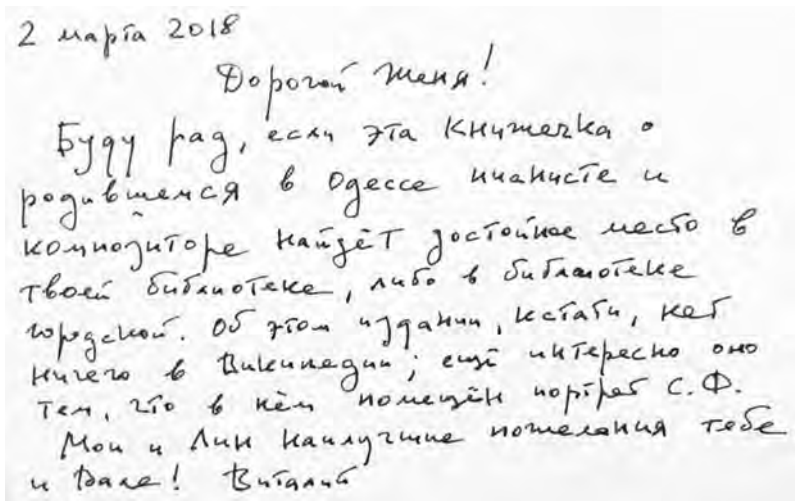 2 марта 2018
Дорогой Женя!
Буду рад, если эта книжечка о
родившемся в Одессе пианисте и
композиторе найдёт достойное место в
твоей библиотеке, либо в библиотеке
городской. Об этом издании, кстати, нет
ничего в Википедии; ещё интересно оно
тем, что в нём помещён портрет С.Ф.
Мои и Лин наилучшие пожелания тебе
и Вале! Виталий